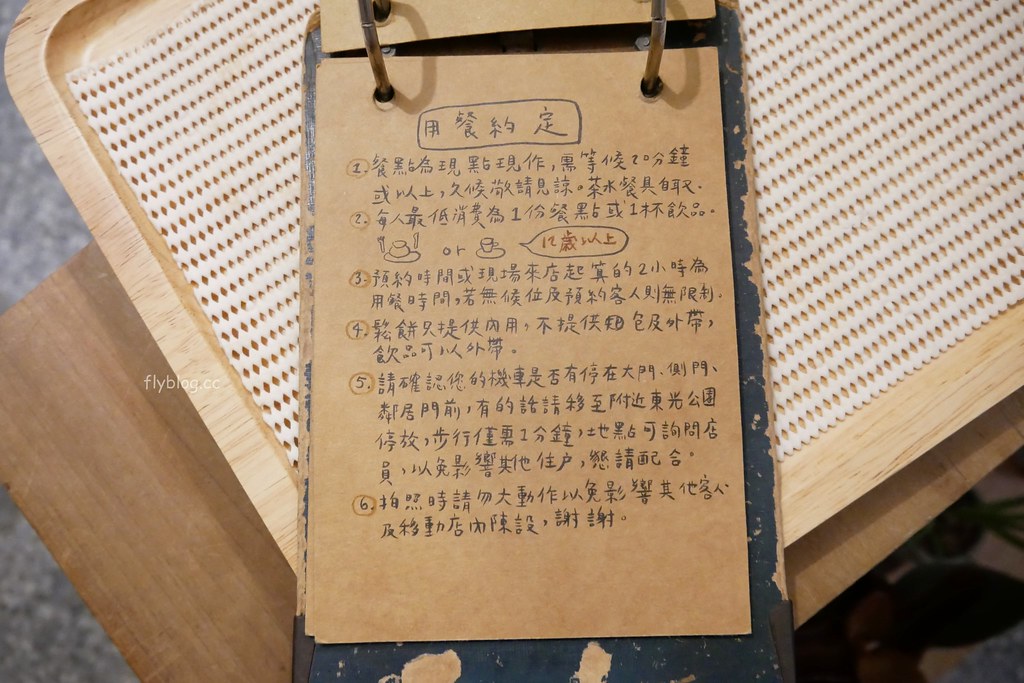 用餐約定
1. 餐點為現點現作,需等候20分鐘
或以上,久候敬請見諒。茶水餐具自取.
2. 每人最低消費為1份餐點或1杯飲品。
or
12歲以上
3. 預約時間或現場來店起算的2小時為
用餐時間,若無候位及預約客人則無限制.
4. 鬆餅只提供內用,不提供麵包及外帶,
飲品可以外帶。
5. 請確認您的機車是否有停在大門、側門、
鄰居門前,有的話請移至附近東光公園
停放,步行僅需1分鐘,地點可詢問店
員,以免影響其他住戶,懇請配合。
6. 拍照時請勿大動作以免影響其他客人
及移動店內陳設,謝謝。
flyblog.cc